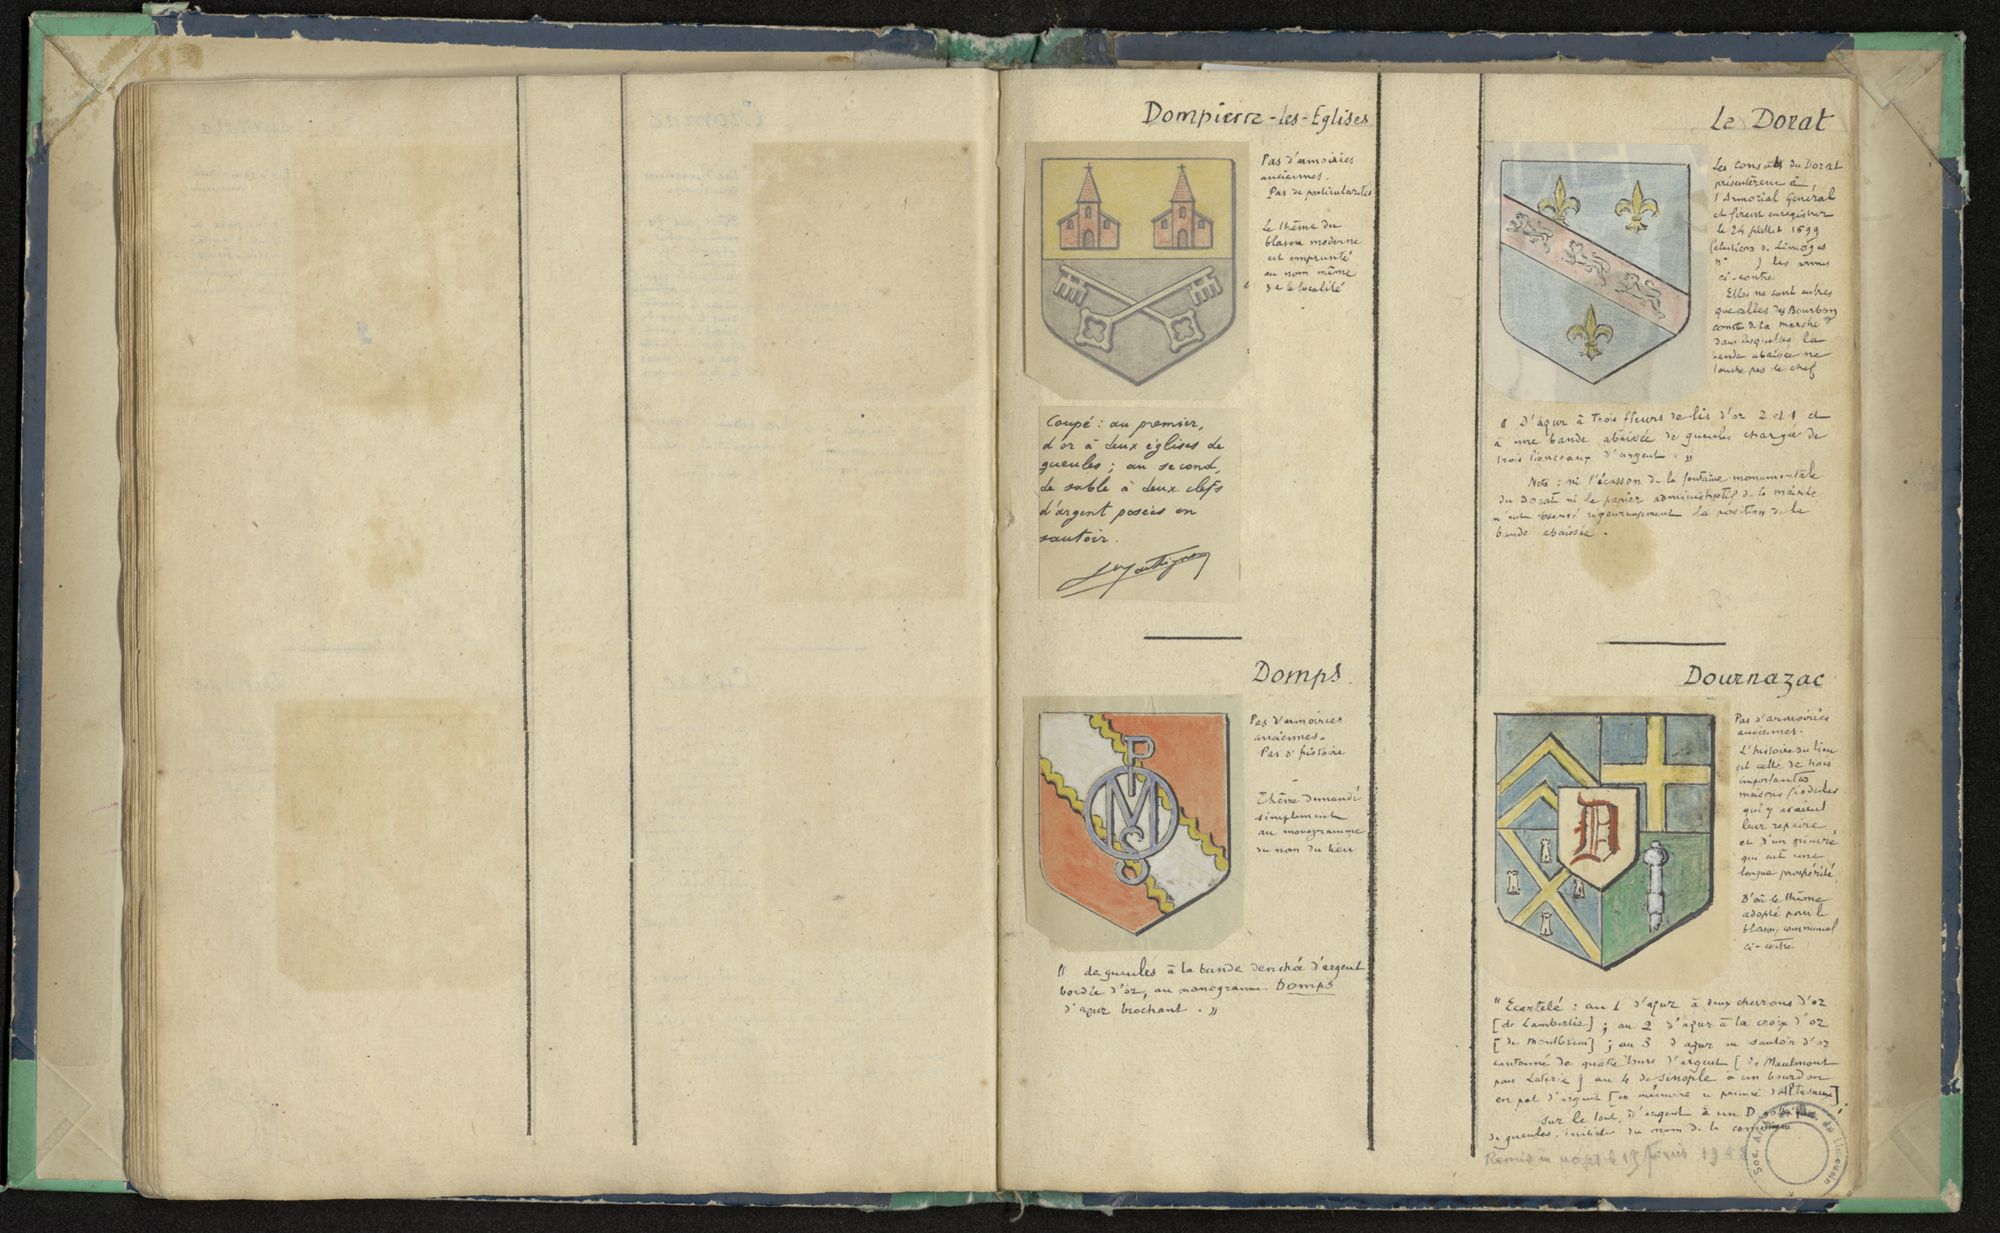 Dompierre-les-Eglises
Pas d'armoiries
anciennes.
Pas de particularités
Le thème du
blason moderne
est emprunté
au nom même
de la localité
Coupé : au premier,
d'or à deux églises de
gueules ; au second,
de sable à deux clefs
d'argent posées en
sautoir.
Domps
Pas d'armoiries
anciennes.
Pas d'histoire
Thème demandé
simplement
au monogramme
du nom du lieu
P
M
S
" de gueules à la bande denchée d'argent
bordée d'or, au monogramme Domps
d'azur brochant . "
Le Dorat
Les consuls du Dorat
présentèrent à
l'Armorial Général
et firent enregistrer
le 24 juillet 1699
Limoges
n° ) les armes
ci-contre
Elles ne sont autres
que celles des Bourbon
comtes de la Marche
dans lesquelles la
bande abaissée ne
touche pas le chef
" D'azur à trois fleurs de lis d'or 2 et 1 et
à une bande abaissée de gueules chargée de
trois lionceaux d'argent . "
Nota : ni l'écusson de la fontaine monumentale
du Dorat ni le papier administratif de la mairie
n'ont observé rigoureusement la position de la
bande abaissée .
Dournazac
Pas d'armoiries
anciennes.
L'histoire du lieu
est celle de trois
importantes
maisons féodales
qui y avaient
leur repaire
et d'un prieuré
qui eut une
longue prospérité.
D'où le thème
adopté pour le
blason communal
ci-contre
D
" Ecartelé : au 1 d'azur à deux chevrons d'or
[de Lambertie] ; au 2 d'azur à la croix d'or
[de Montbrun] ; au 3 d'azur au sautoir d'or
cantonné de quatre tours d'argent [de Maulmont
pour Laterie] au 4 de sinople à un bourdon
en pal d'argent [en mémoire du prieuré d'Altavaux]
sur le tout, d'argent à un D gothique
de gueules, initiale du nom de la commune
du Limousin